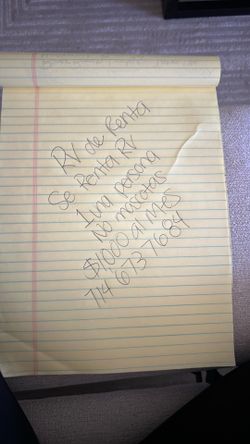 RV de Renta
Se Renta RV
1 una persona
No mascotas
$1000 al mes
714 673 7684